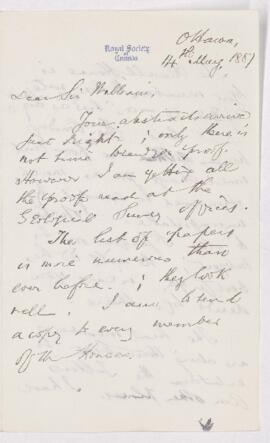 Royal Society
of Canada
Ottawa,
4th May 1887
Dear Sir William,
Your abstracts arrived
just right; only there is
not time to send you proof.
However I am getting all
the proofs read at the
Geological Survey offices.
The list of papers
is more numerous than
ever before; they look
well. I am to send
a copy to every member
of the Houses.